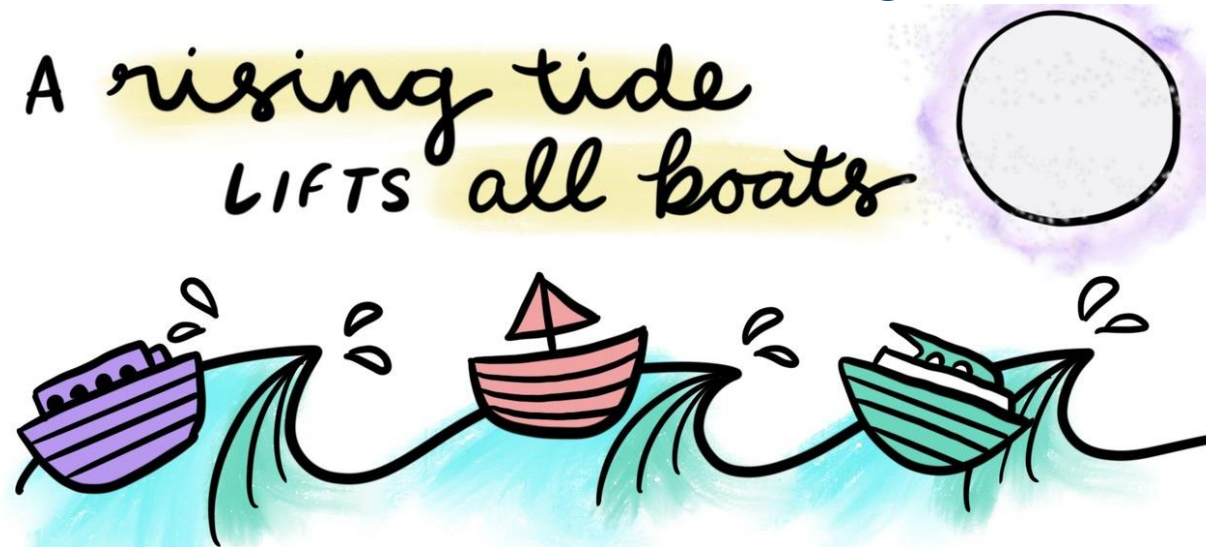 A rising tide
LIFTS all boats